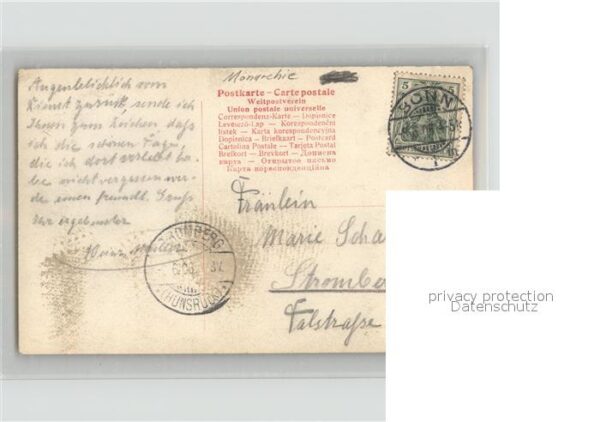 Monarchie
Augenblicklich vom
Dienst zurück sende ich
Ihnen zum Zeichen daß
ich die schönen Tage,
die ich dort verlebt ha-
be nicht vergessen wer-
de einen freundl. Gruß
Ihr ergebenster
Postkarte - Carte postale
Weltpostverein
Union postale universelle
Correspondenz-Karte — Dopisnice
Levelező-Lap — Korespondenční
lístek — Karta korespondencyjna
Dopisnica — Briefkaart — Postcard
Cartolina Postale — Tarjeta Postal
Brefkort — Brevkort — Дописна
карта — Открытое письмо
Карта кореспонденційна
5 5
BONN
Fräulein
Marie Scha
Stromber
Talstraße
STROMBERG
(HUNSRÜCK)
privacy protection
Datenschutz